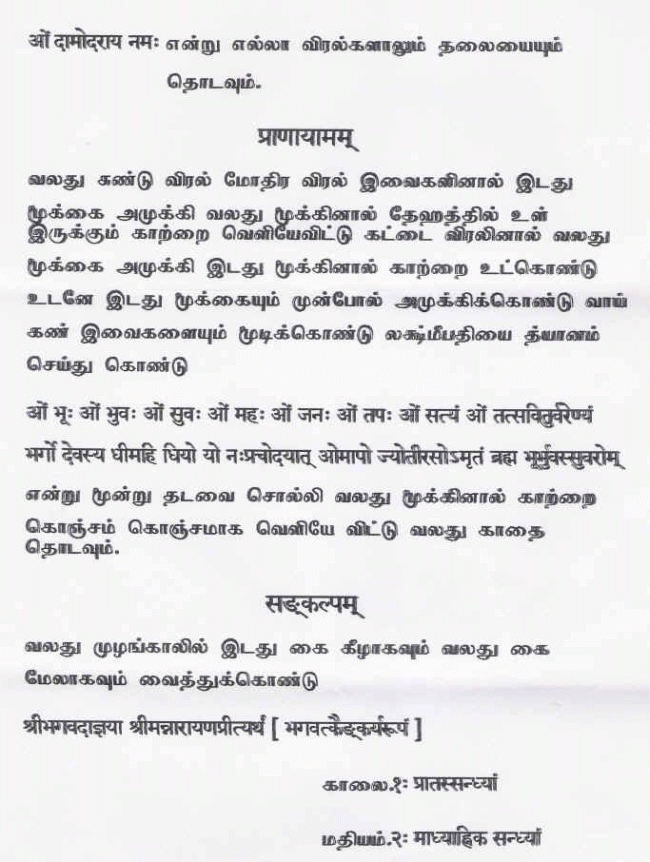 ओं दामोदराय नमः என்று எல்லா விரல்களாலும் தலையையும்
தொடவும்.
प्राणायामम्
வலது சுண்டு விரல் மோதிர விரல் இவைகளினால் இடது
மூக்கை அமுக்கி வலது மூக்கினால் தேஹத்தில் உள்
இருக்கும் காற்றை வெளியேவிட்டு கட்டை விரலினால் வலது
மூக்கை அமுக்கி இடது மூக்கினால் காற்றை உட்கொண்டு
உடனே இடது மூக்கையும் முன்போல் அமுக்கிக்கொண்டு வாய்
கண் இவைகளையும் மூடிக்கொண்டு லக்ஷ்மீபதியை த்யானம்
செய்து கொண்டு
ओं भूः ओं भुवः ओं सुवः ओं महः ओं जनः ओं तपः ओं सत्यं ओं तत्सवितुर्वरेण्यं
भर्गो देवस्य धीमहि धियो यो नःप्रचोदयात् ओमापो ज्योतीरसोऽमृतं ब्रह्म भूर्भुवस्सुवरोम्
என்று மூன்று தடவை சொல்லி வலது மூக்கினால் காற்றை
கொஞ்சம் கொஞ்சமாக வெளியே விட்டு வலது காதை
தொடவும்.
सङ्कल्पम्
வலது முழங்காலில் இடது கை கீழாகவும் வலது கை
மேலாகவும் வைத்துக்கொண்டு
श्रीभगवदाज्ञया श्रीमन्नारायणप्रीत्यर्थं [ भगवत्कैङ्कर्यरूपं ]
காலை.१: प्रातस्सन्ध्यां
மதியம்.२: माध्याह्निक सन्ध्यां